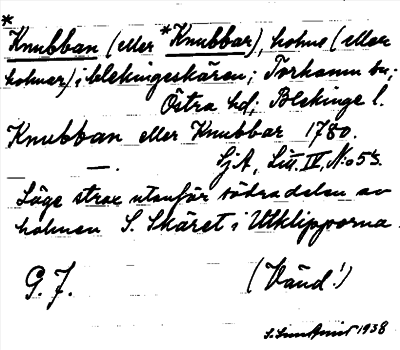 *Knubban (eller *Knubbar), holme (eller
holmar) i blekingeskären; Torhamn sn;
Östra hd; Blekinge l.
Knubban eller Knubbar 1780.
—. SjA, Litt. IV, N:o 55.
Läge strax utanför södra delen av
holmen S. Skäret i Utklipporna.
G. J. (Vänd!)
1938